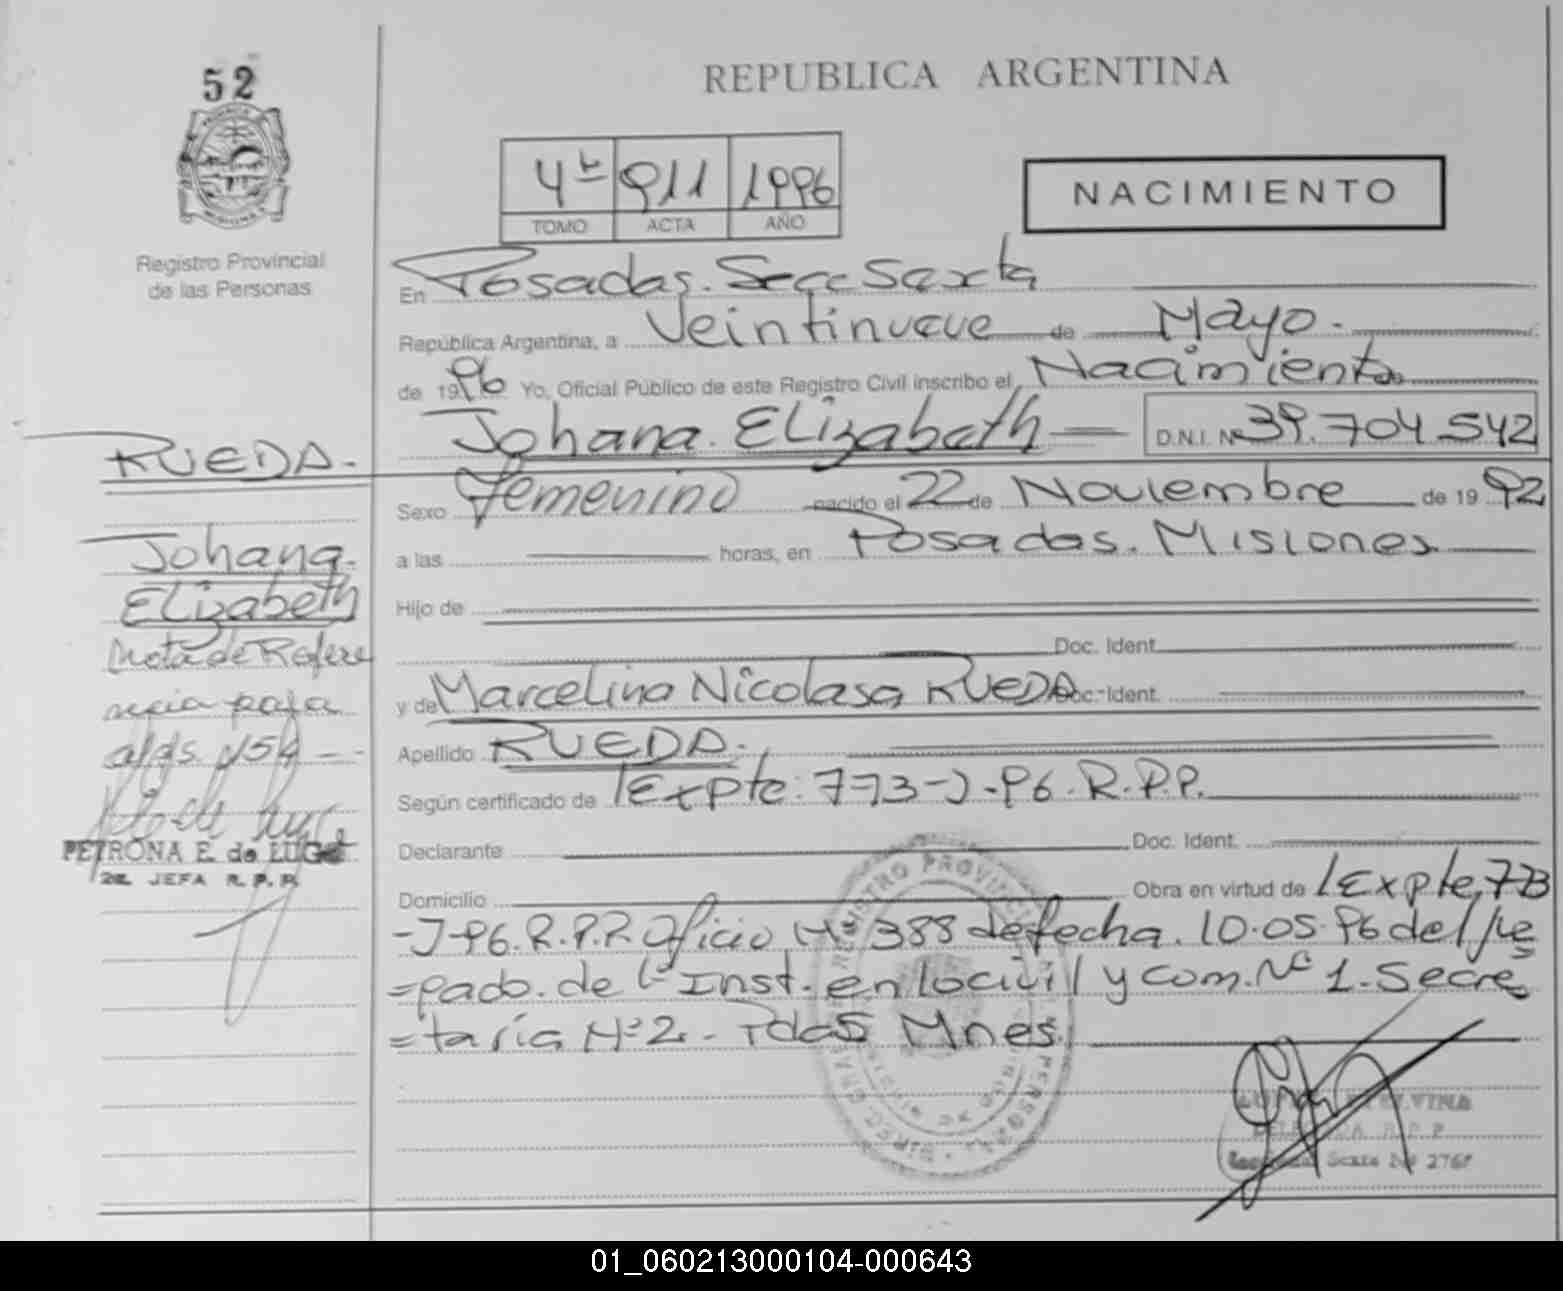 52
REPUBLICA ARGENTINA
4º 911 1996
TOMO ACTA AÑO
NACIMIENTO
Registro Provincial
de las Personas
En Posadas. Secc Sexta
República Argentina, a Veintinueve de Mayo.
de 1996 Yo, Oficial Público de este Registro Civil inscribo el Nacimiento
Johana. Elizabeth D.N.I. Nº 39.704.542
RUEDA.
Sexo Femenino nacido el 22 de Noviembre de 1992
Johana.
a las horas, en Posadas. Misiones
Elizabeth
Hijo de
Nota de Refere
Doc. Ident.
ncia para
y de Marcelina Nicolasa RUEDA Doc. Ident.
Apellido RUEDA.
Según certificado de Expte: 773-J-96. R.P.P.
PETRONA E. de LUGO
JEFA R.P.P.
Declarante Doc. Ident.
Domicilio Obra en virtud de Expte, 773
-J-96. R.P.P. Oficio Nº 388 de fecha. 10.05.96 del Juz
=gado. de 1ª Inst. en lo civil y com. Nº 1. Secre
=taría Nº 2.- Pdas Mnes.
R.P.P.
Sexta Nº 2767
01_060213000104-000643